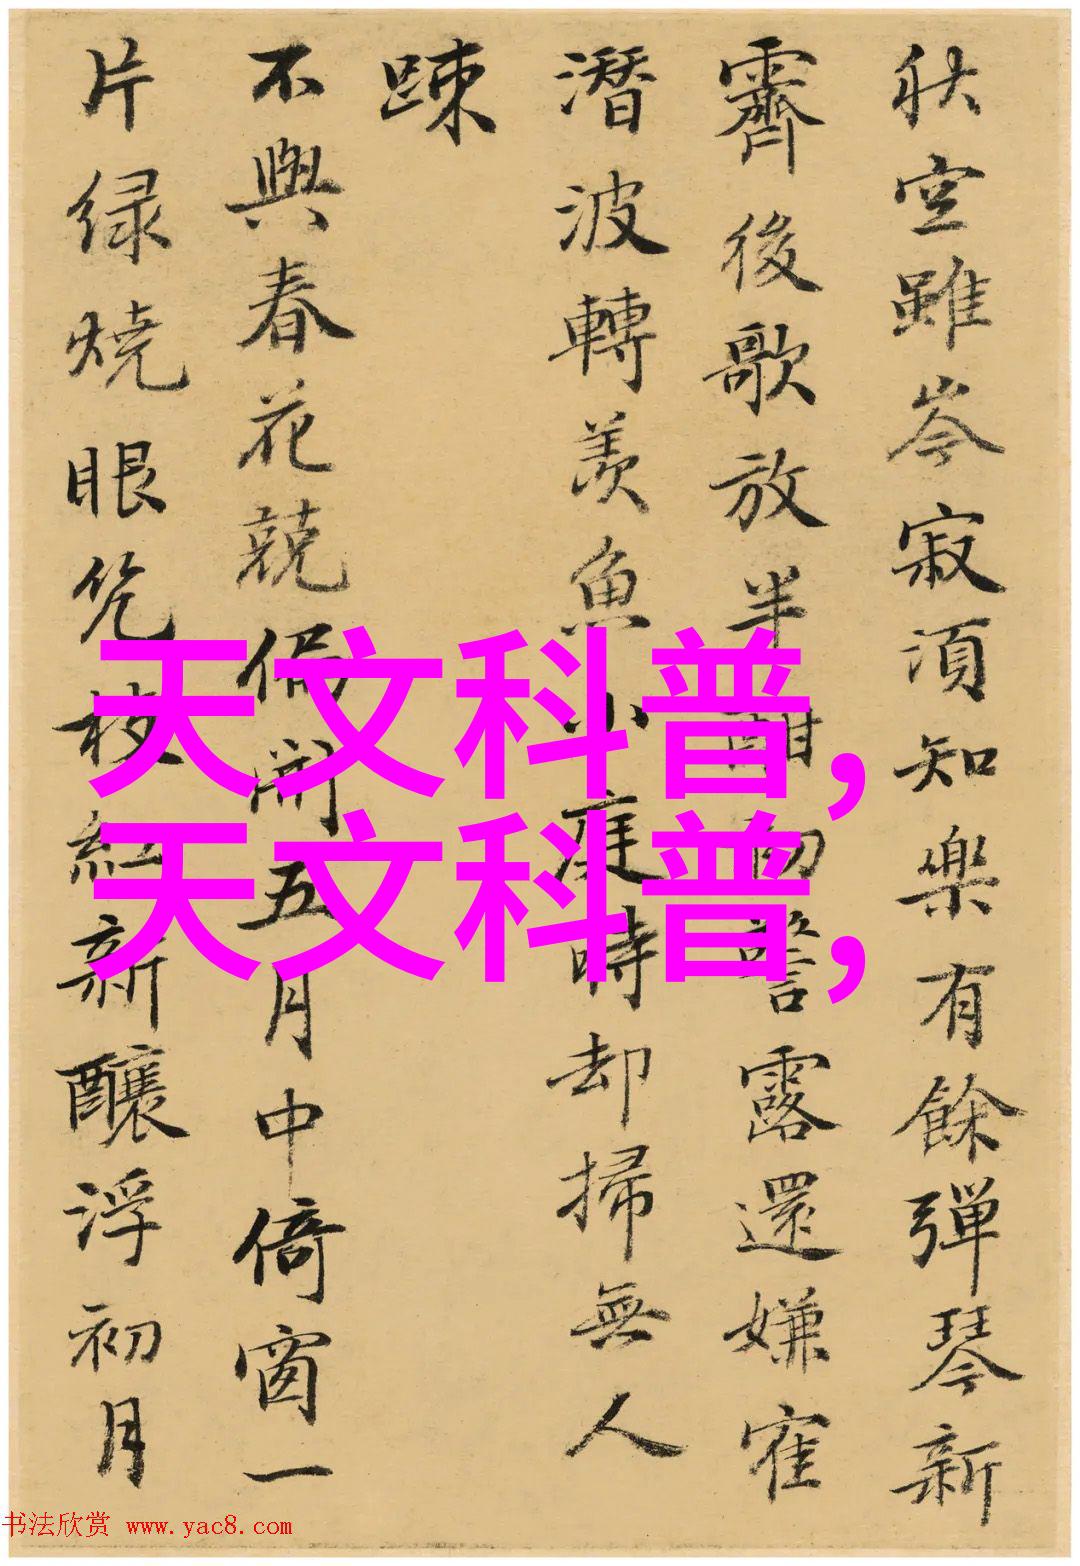 秋空雖岑寂湏知樂有餘彈琴新
霽後歌放半酣警露還嫌寉
潛波轉羨魚小庭時却掃無人
踈
不與春花競偏開五月中倚窗一
片緑燒眼枝紅新釀浮初月
天文科普,
天文科普,
书法欣赏 www.yac8.com